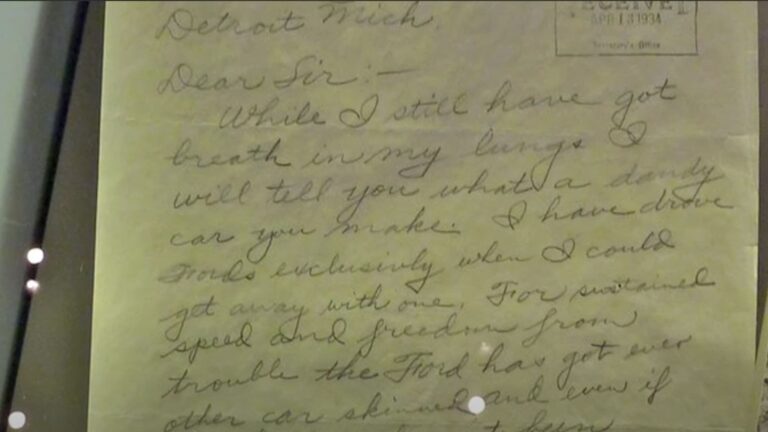 Detroit Mich.
RECEIVED
APR 13 1934
Secretary's Office
Dear Sir:—
While I still have got
breath in my lungs I
will tell you what a dandy
car you make. I have drove
Fords exclusivly when I could
get away with one. For sustained
speed and freedom from
trouble the Ford has got ever
other car skinned and even if